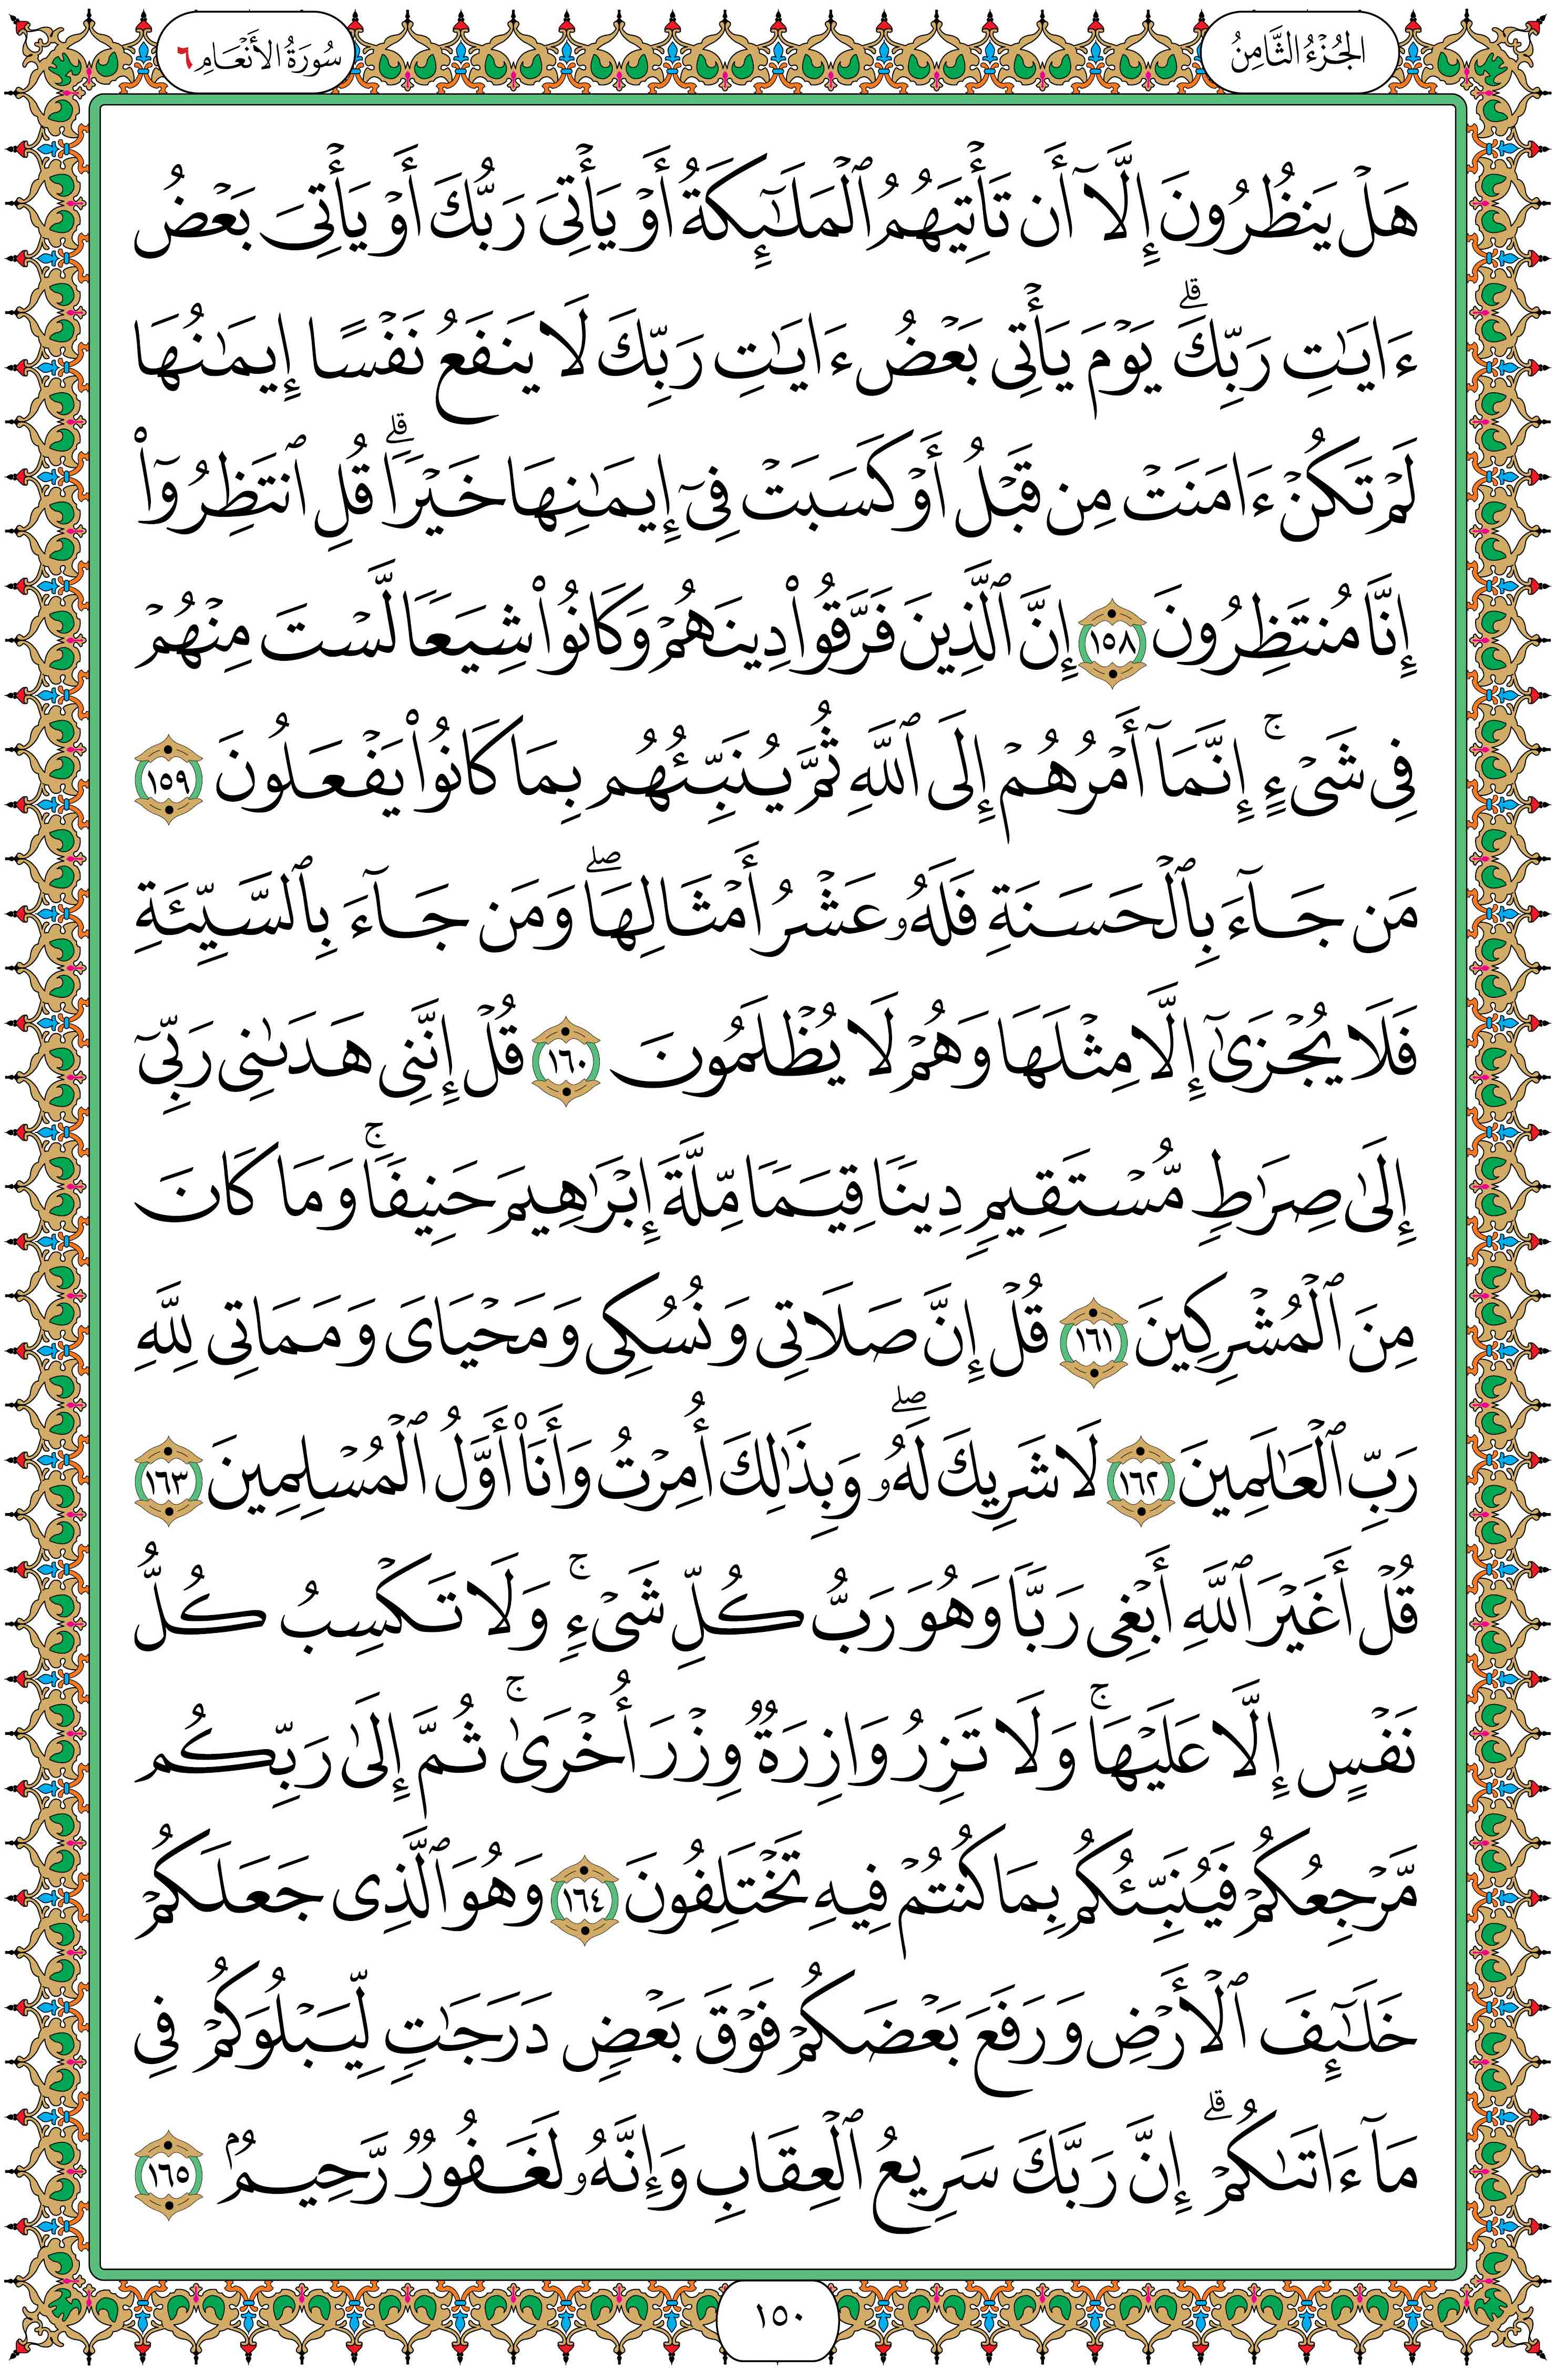 الجُزْءُ الثَّامِنُ
سُورَةُ الأَنْعَامِ ٦
هَلْ يَنظُرُونَ إِلَّآ أَن تَأْتِيَهُمُ ٱلْمَلَٰٓئِكَةُ أَوْ يَأْتِىَ رَبُّكَ أَوْ يَأْتِىَ بَعْضُ
ءَايَٰتِ رَبِّكَ ۗ يَوْمَ يَأْتِى بَعْضُ ءَايَٰتِ رَبِّكَ لَا يَنفَعُ نَفْسًا إِيمَٰنُهَا
لَمْ تَكُنْ ءَامَنَتْ مِن قَبْلُ أَوْ كَسَبَتْ فِىٓ إِيمَٰنِهَا خَيْرًا ۗ قُلِ ٱنتَظِرُوٓا۟
إِنَّا مُنتَظِرُونَ ١٥٨ إِنَّ ٱلَّذِينَ فَرَّقُوا۟ دِينَهُمْ وَكَانُوا۟ شِيَعًا لَّسْتَ مِنْهُمْ
فِى شَىْءٍ ۚ إِنَّمَآ أَمْرُهُمْ إِلَى ٱللَّهِ ثُمَّ يُنَبِّئُهُم بِمَا كَانُوا۟ يَفْعَلُونَ ١٥٩
مَن جَآءَ بِٱلْحَسَنَةِ فَلَهُۥ عَشْرُ أَمْثَالِهَا ۖ وَمَن جَآءَ بِٱلسَّيِّئَةِ
فَلَا يُجْزَىٰٓ إِلَّا مِثْلَهَا وَهُمْ لَا يُظْلَمُونَ ١٦٠ قُلْ إِنَّنِى هَدَىٰنِى رَبِّىٓ
إِلَىٰ صِرَٰطٍ مُّسْتَقِيمٍ دِينًا قِيَمًا مِّلَّةَ إِبْرَٰهِيمَ حَنِيفًا ۚ وَمَا كَانَ
مِنَ ٱلْمُشْرِكِينَ ١٦١ قُلْ إِنَّ صَلَاتِى وَنُسُكِى وَمَحْيَاىَ وَمَمَاتِى لِلَّهِ
رَبِّ ٱلْعَٰلَمِينَ ١٦٢ لَا شَرِيكَ لَهُۥ ۖ وَبِذَٰلِكَ أُمِرْتُ وَأَنَا۠ أَوَّلُ ٱلْمُسْلِمِينَ ١٦٣
قُلْ أَغَيْرَ ٱللَّهِ أَبْغِى رَبًّا وَهُوَ رَبُّ كُلِّ شَىْءٍ ۚ وَلَا تَكْسِبُ كُلُّ
نَفْسٍ إِلَّا عَلَيْهَا ۚ وَلَا تَزِرُ وَازِرَةٌ وِزْرَ أُخْرَىٰ ۚ ثُمَّ إِلَىٰ رَبِّكُم
مَّرْجِعُكُمْ فَيُنَبِّئُكُم بِمَا كُنتُمْ فِيهِ تَخْتَلِفُونَ ١٦٤ وَهُوَ ٱلَّذِى جَعَلَكُمْ
خَلَٰٓئِفَ ٱلْأَرْضِ وَرَفَعَ بَعْضَكُمْ فَوْقَ بَعْضٍ دَرَجَٰتٍ لِّيَبْلُوَكُمْ فِى
مَآ ءَاتَىٰكُمْ ۗ إِنَّ رَبَّكَ سَرِيعُ ٱلْعِقَابِ وَإِنَّهُۥ لَغَفُورٌ رَّحِيمٌۢ ١٦٥
١٥٠